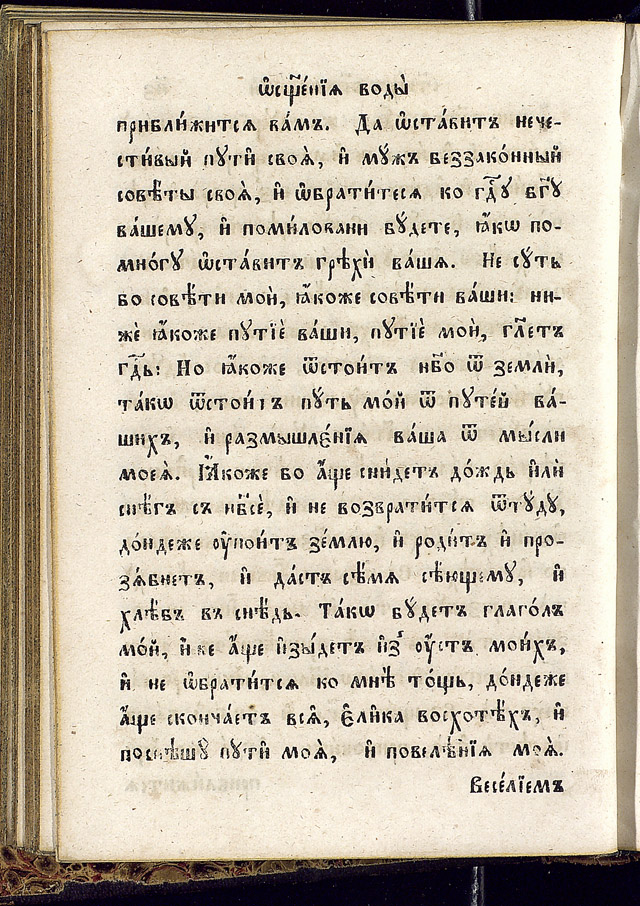 ѡ҆сщ҃е́нїѧ воды̀
прибли́житсѧ ва́мъ. Да ѡ҆ста́витъ нече-
сти́вый пꙋти̑ своѧ̀, и҆ мꙋ́жъ беззако́нный
совѣ́ты своѧ̀, и҆ ѡ҆брати́тесѧ ко гдⷭ҇ꙋ бг҃ꙋ
ва́шемꙋ, и҆ поми́ловани бꙋ́дете, ꙗ҆́кѡ по-
мно́гꙋ ѡ҆ста́витъ грѣхѝ ва́шѧ. Не сꙋ́ть
бо совѣ́ти моѝ, ꙗ҆́коже совѣ́ти ва́ши: ни-
жѐ ꙗ҆́коже пꙋтїѐ ва́ши, пꙋтїѐ моѝ, гл҃етъ
гдⷭ҇ь: Но ꙗ҆́коже ѿстои́тъ нб҃о ѿ землѝ,
та́кѡ ѿстои́тъ пꙋ́ть мо́й ѿ пꙋте́й ва́-
шихъ, и҆ размышле́нїѧ ва́ша ѿ мы́сли
моеѧ̀. Ꙗ҆́коже бо а҆́ще сни́детъ до́ждь и҆лѝ
снѣ́гъ съ нб҃сѐ, и҆ не возврати́тсѧ ѿтꙋ́дꙋ,
до́ндеже ᲂу҆пои́тъ зе́млю, и҆ роди́тъ и҆ про-
зѧ́бнетъ, и҆ да́стъ сѣ́мѧ сѣ́ющемꙋ, и҆
хлѣ́бъ въ снѣ́дь. Та́кѡ бꙋ́детъ глаго́лъ
мо́й, и҆́же а҆́ще и҆зы́детъ и҆з̾ ᲂу҆́стъ мои́хъ,
и҆ не ѡ҆брати́тсѧ ко мнѣ̀ то́щь, до́ндеже
а҆́ще сконча́етъ всѧ̑, є҆ли́ка восхотѣ́хъ, и҆
поспѣшꙋ̀ пꙋти̑ моѧ̀, и҆ повелѣ́нїѧ моѧ̀.
Весе́лїемъ